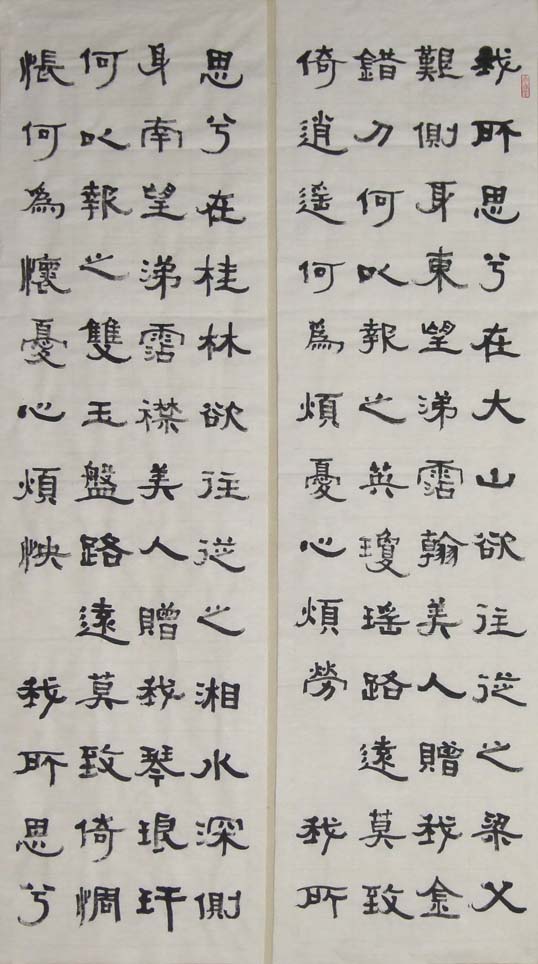 我所思兮在大山欲往從之梁父
艱側身東望涕霑翰美人贈我金
錯刀何以報之英瓊瑤路遠莫致
倚逍遙何為煩憂心煩勞 我所
思兮在桂林欲往從之湘水深側
身南望涕霑襟美人贈我琴琅玕
何以報之雙玉盤路遠莫致倚惆
悵何為懷憂心煩怏 我所思兮